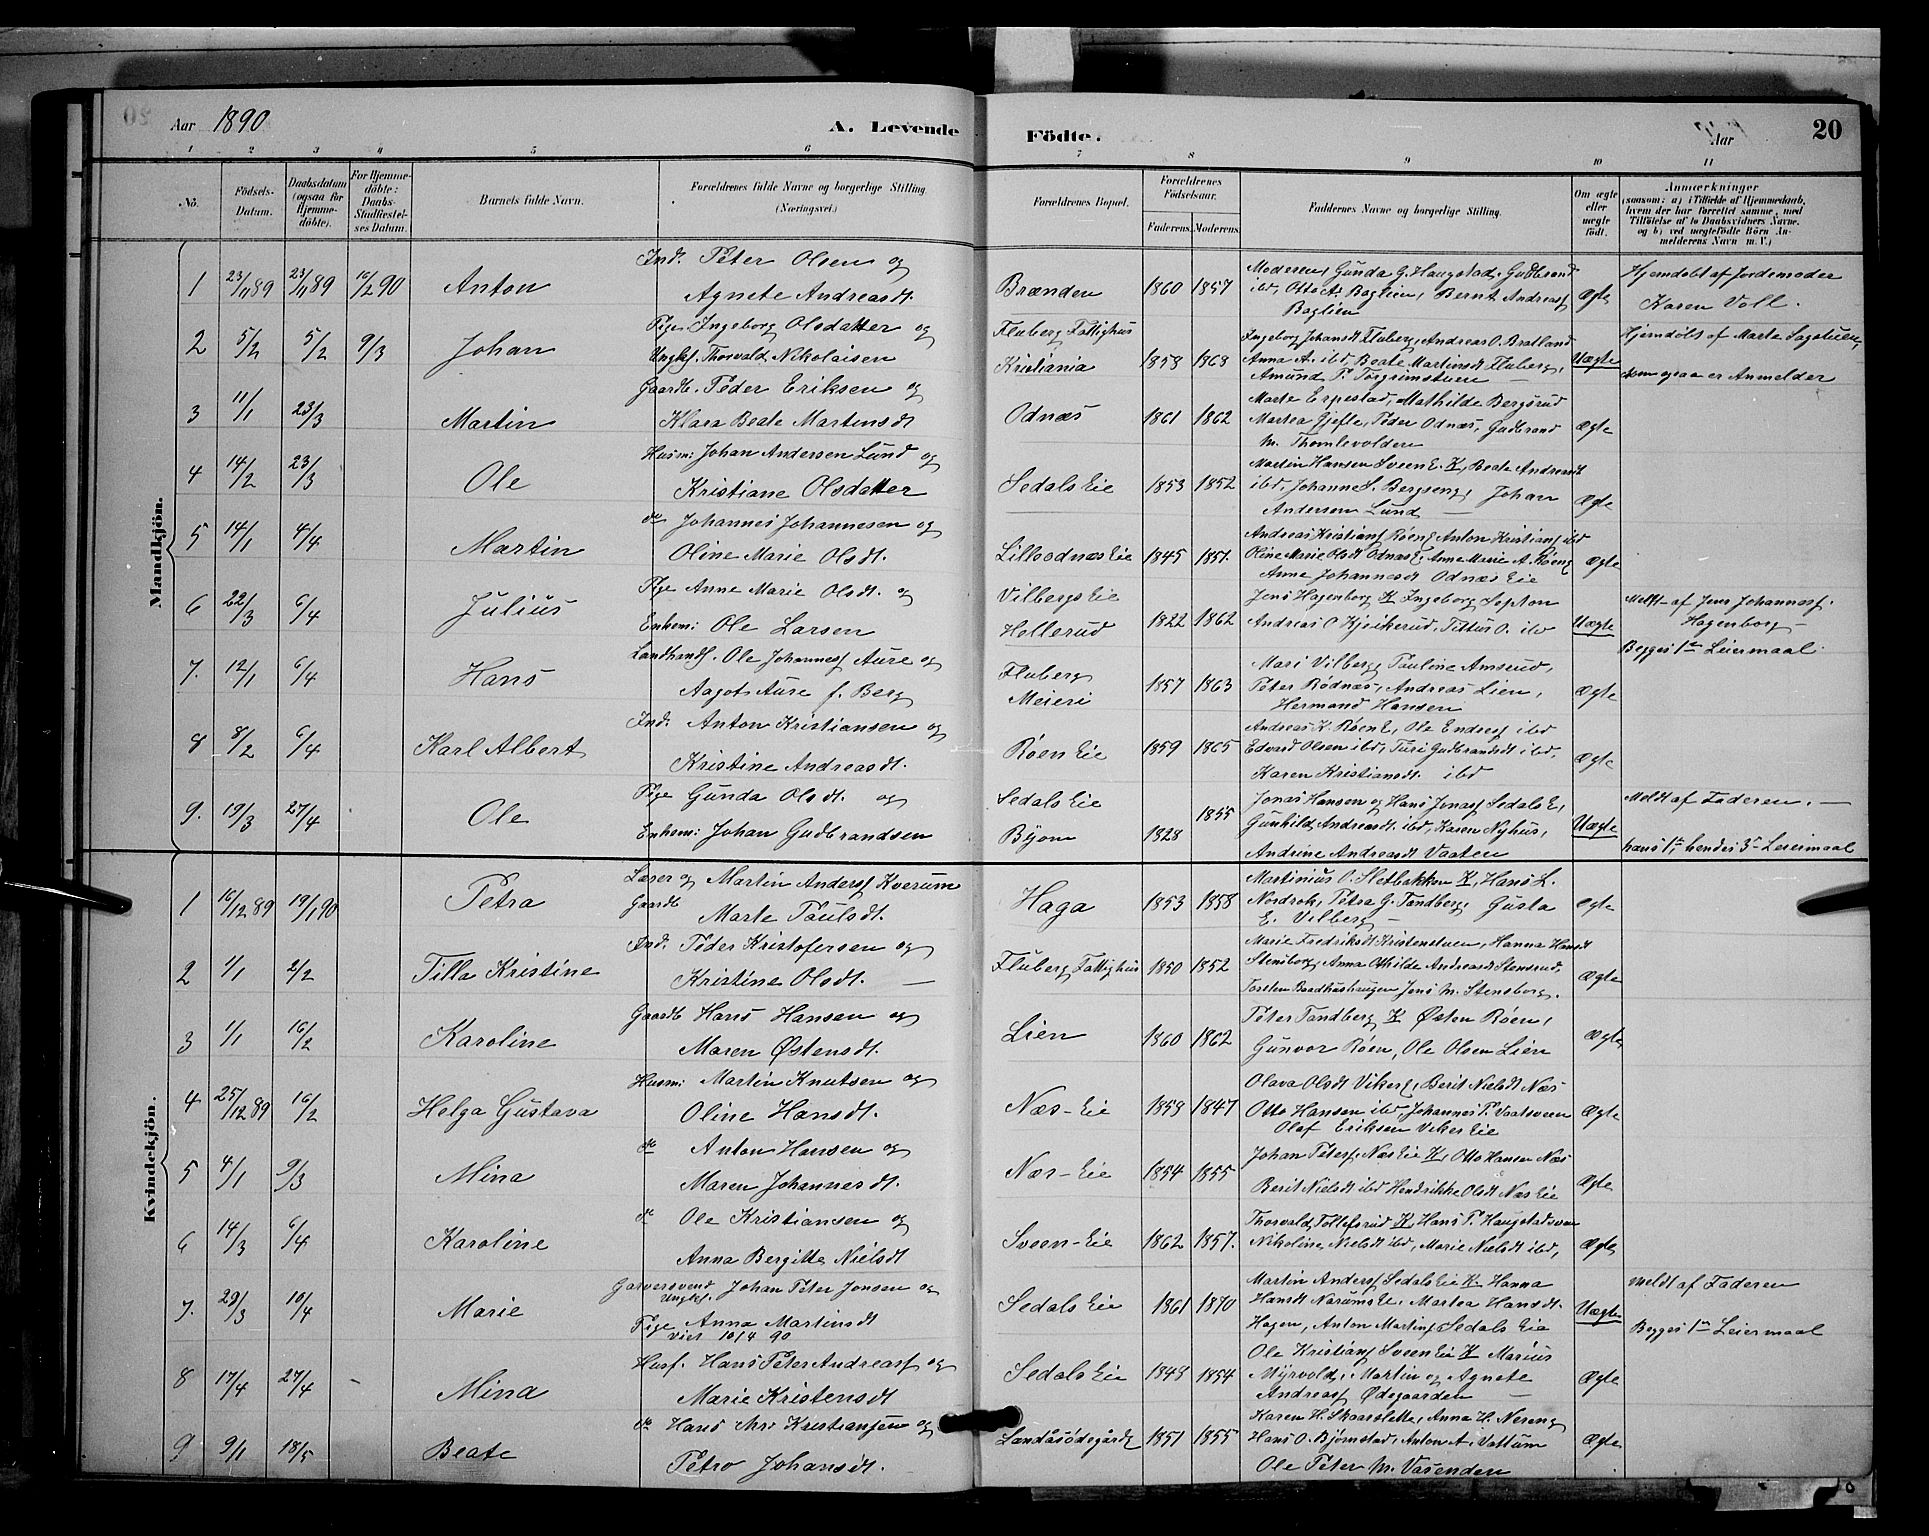 Aar 1890
A. Levende Födte.
Aar
20
1 2 3 4 5 6 7 8 9 10 11
No.
Födsels-Datum.
Daabsdatum (ogsaa for Hjemme-döbte).
For Hjemme-döbte: Daabs-Stadfæstel-ses Datum.
Barnets fulde Navn.
Forældrenes fulde Navne og borgerlige Stilling (Næringsvei.)
Forældrenes Bopæl.
Forældrenes Födselsaar.
Faderens. Moderens.
Faddernes Navne og borgerlige Stilling.
Om ægte eller uægte født.
Anmærkninger
(saasom: a) i Tilfælde af Hjemmedaab, hvem der har forrettet samme, med Tilföielse af to Daabsvidners Navne, og b) ved uægtefödte Börn An-melderens Navn m. V.)
Mandkjön.
1 23/11 89 23/11 89 16/2 90 Anton
Ind. Peter Olsen og
Agnete Andreasdt.
Brænden 1860 1857
Moderen, Gunda G. Haugstad, Gudbrand
ibd, Otto A. Baglien, Bernt Andreasf
Baglien
Ægte
Hjemdøbt af Jordemoder
Karen Voll.
2 5/2 5/2 9/3 Johan
Pige Ingeborg Olsdatter og
Ungkf. Thorvald Nikolaisen
Fluberg Fattighus
Kristiania
1858 1868
Ingeborg Johansdt Fluberg, Andreas O. Bratland
Anna A. ibd, Beate Martinsdt Fluberg,
Amund P. Torgrimstuen
Uægte
Hjemdøbt af Marte Sagstuen,
som ogsaa er Anmelder
3 11/1 23/3 Martin
Gaardb. Peder Eriksen og
Klara Beate Martinsdt
Odnæs 1861 1862
Marte Erpestad, Mathilde Bergsrud
Martea Gjefle, Peder Odnæs, Gudbrand
M. Thomlevolden
Ægte
4 14/2 23/3 Ole
Husm: Johan Andersen Lund og
Kristiane Olsdatter
Sedals Eie 1853 1852
Martin Hansen Sveen E. K, Beate Andreasdt
ibd, Johanne S. Bergseng, Johan
Andersen Lund
Ægte
5 14/1 4/4 Martin
do Johannes Johannesen og
Oline Marie Olsdt.
LilleodnæsEie 1845 1851.
Andreas Kristiansf Røeng Anton Kristiansf ibd
Oline Marie Olsdt Odnæs E, Anne Marie A. Røeng
Anne Johannesdt Odnæs Eie
Ægte
6 22/3 6/4 Julius
Pige Anne Marie Olsdt. og
Enkem: Ole Larsen
Vilbergs Eie
Hellerud
1822 1862
Jens Hagenborg K Ingeborg Septon
Andreas O Kjeikerud, Tittus O. ibd
Uægte
Meldt af Jens Johannesf.
Hagenborg
Begges 1ste Leiermaal.
7. 12/1 6/4 Hans
Landhandl. Ole Johannesf Aure og
Aagot Aure f. Berg
Fluberg
Meieri
1857 1863
Mari Vilberg, Pauline Amsrud,
Peter Rødnæs, Andreas Lien,
Hermand Hansen
Ægte
8 8/2 6/4 Karl Albert
Ind. Anton Kristiansen og
Kristine Andreasdt.
Røen Eie 1859 1865
Andreas K. Røen E, Ole Endresf ibd
Edvard Olsen ibd, Turi Gudbrandsdt ibd,
Karen Kristiansdt. ibd
Ægte
9. 19/3 27/4 Ole
Pige Gunda Olsdt. og
Enkem: Johan Gudbrandsen
Sedals Eie
Byom
1828 1855
Jonas Hansen og Hans Jonasf Sedals E,
Gunhild Andreasdt ibd, Karen Nyhus,
Andrine Andreasdt Vaaten
Uægte
Meldt af Faderen.
hans 1ste, hendes 3die Leiermaal
Kvindekjön.
1 16/12 89 19/1 90 Petra
Lærer og Gaardb Martin Andersf Kverum
Marte Paulsdt.
Haga 1853 1858
Martinius O. Sletbakken K, Hans L.
Nordrok, Petra G. Tandberg, Gusta
E. Vilberg
Ægte
2 1/1 2/2 Tilla Kristine
Ind. Peder Kristofersen og
Kristine Olsdt.
Fluberg Fattighus 1850 1852
Marie Fredriksdt Kristenstuen, Hanna Hansdt
Stensborg, Anna Othilde Andreasdt Stensrud,
Torsten Baadhushaugen Jens M. Stensborg.
Ægte
3 1/1 16/2 Karoline
Gaardb Hans Hansen og
Maren Østensdt.
Lien 1860 1862
Peter Tandberg K Østen Røen,
Gunvor Røen, Ole Olsen Lien
Ægte
4 25/12 89 16/2 Helga Gustava
Husm: Martin Knutsen og
Oline Hansdt.
Næs-Eie 1858 1847
Olava Olsdt Viker E, Berit Nielsdt Næs
Otto Hansen ibd, Johannes P. Vaatsveen
Olaf Eriksen Viker Eie
Ægte
5 4/1 9/3 Mina
do Anton Hansen og
Maren Johannesdt.
Næs-Eie 1854 1855
Johan Petersf Næs Eie K, Otto Hansen Næs
Berit Nielsdt ibd Hendrikke Olsdt Næs Eie
Ægte
6 14/3 6/4 Karoline
do Ole Kristiansen og
Anna Bergitte Nielsdt
Sveen-Eie 1862 1857.
Thorvald Tollefsrud K, Hans P. Haugstadsveen
Nikoline Nielsdt ibd, Marie Nielsdt ibd,
Ægte
7. 29/3 10/4 Marie
Garversvend Ungkf. Johan Peter Jonsen og
Pige Anna Martinsdt
viet 10/4 90
Sedals Eie 1861 1870
Martin Andersf Sedals Eie K. Hanna
Hansdt Narums E, Martea Hansdt.
Hagen, Anton Martinsf Sedals Eie
Uægte
Meldt af Faderen
Begges 1ste Leiermaal
8 17/4 27/4 Mina
Husf. Hans Peter Andreasf og
Marie Kristensdt
Sedals Eie 1849 1854
Ole Kristiansf Sveen Eie K Marius
Myrvold, Martin og Agnete
Andreasf Ødegaarden
Ægte
9 9/1 18/5 Beate
do Hans Chr. Kristiansen og
Petro Johansdt.
Landåsödegård 1851 1855
Karen H. Skaarslette, Anna H. Nereng
Hans O. Bjørnstad, Anton A. Vattum
Ole Peter M. Vasenden
Ægte